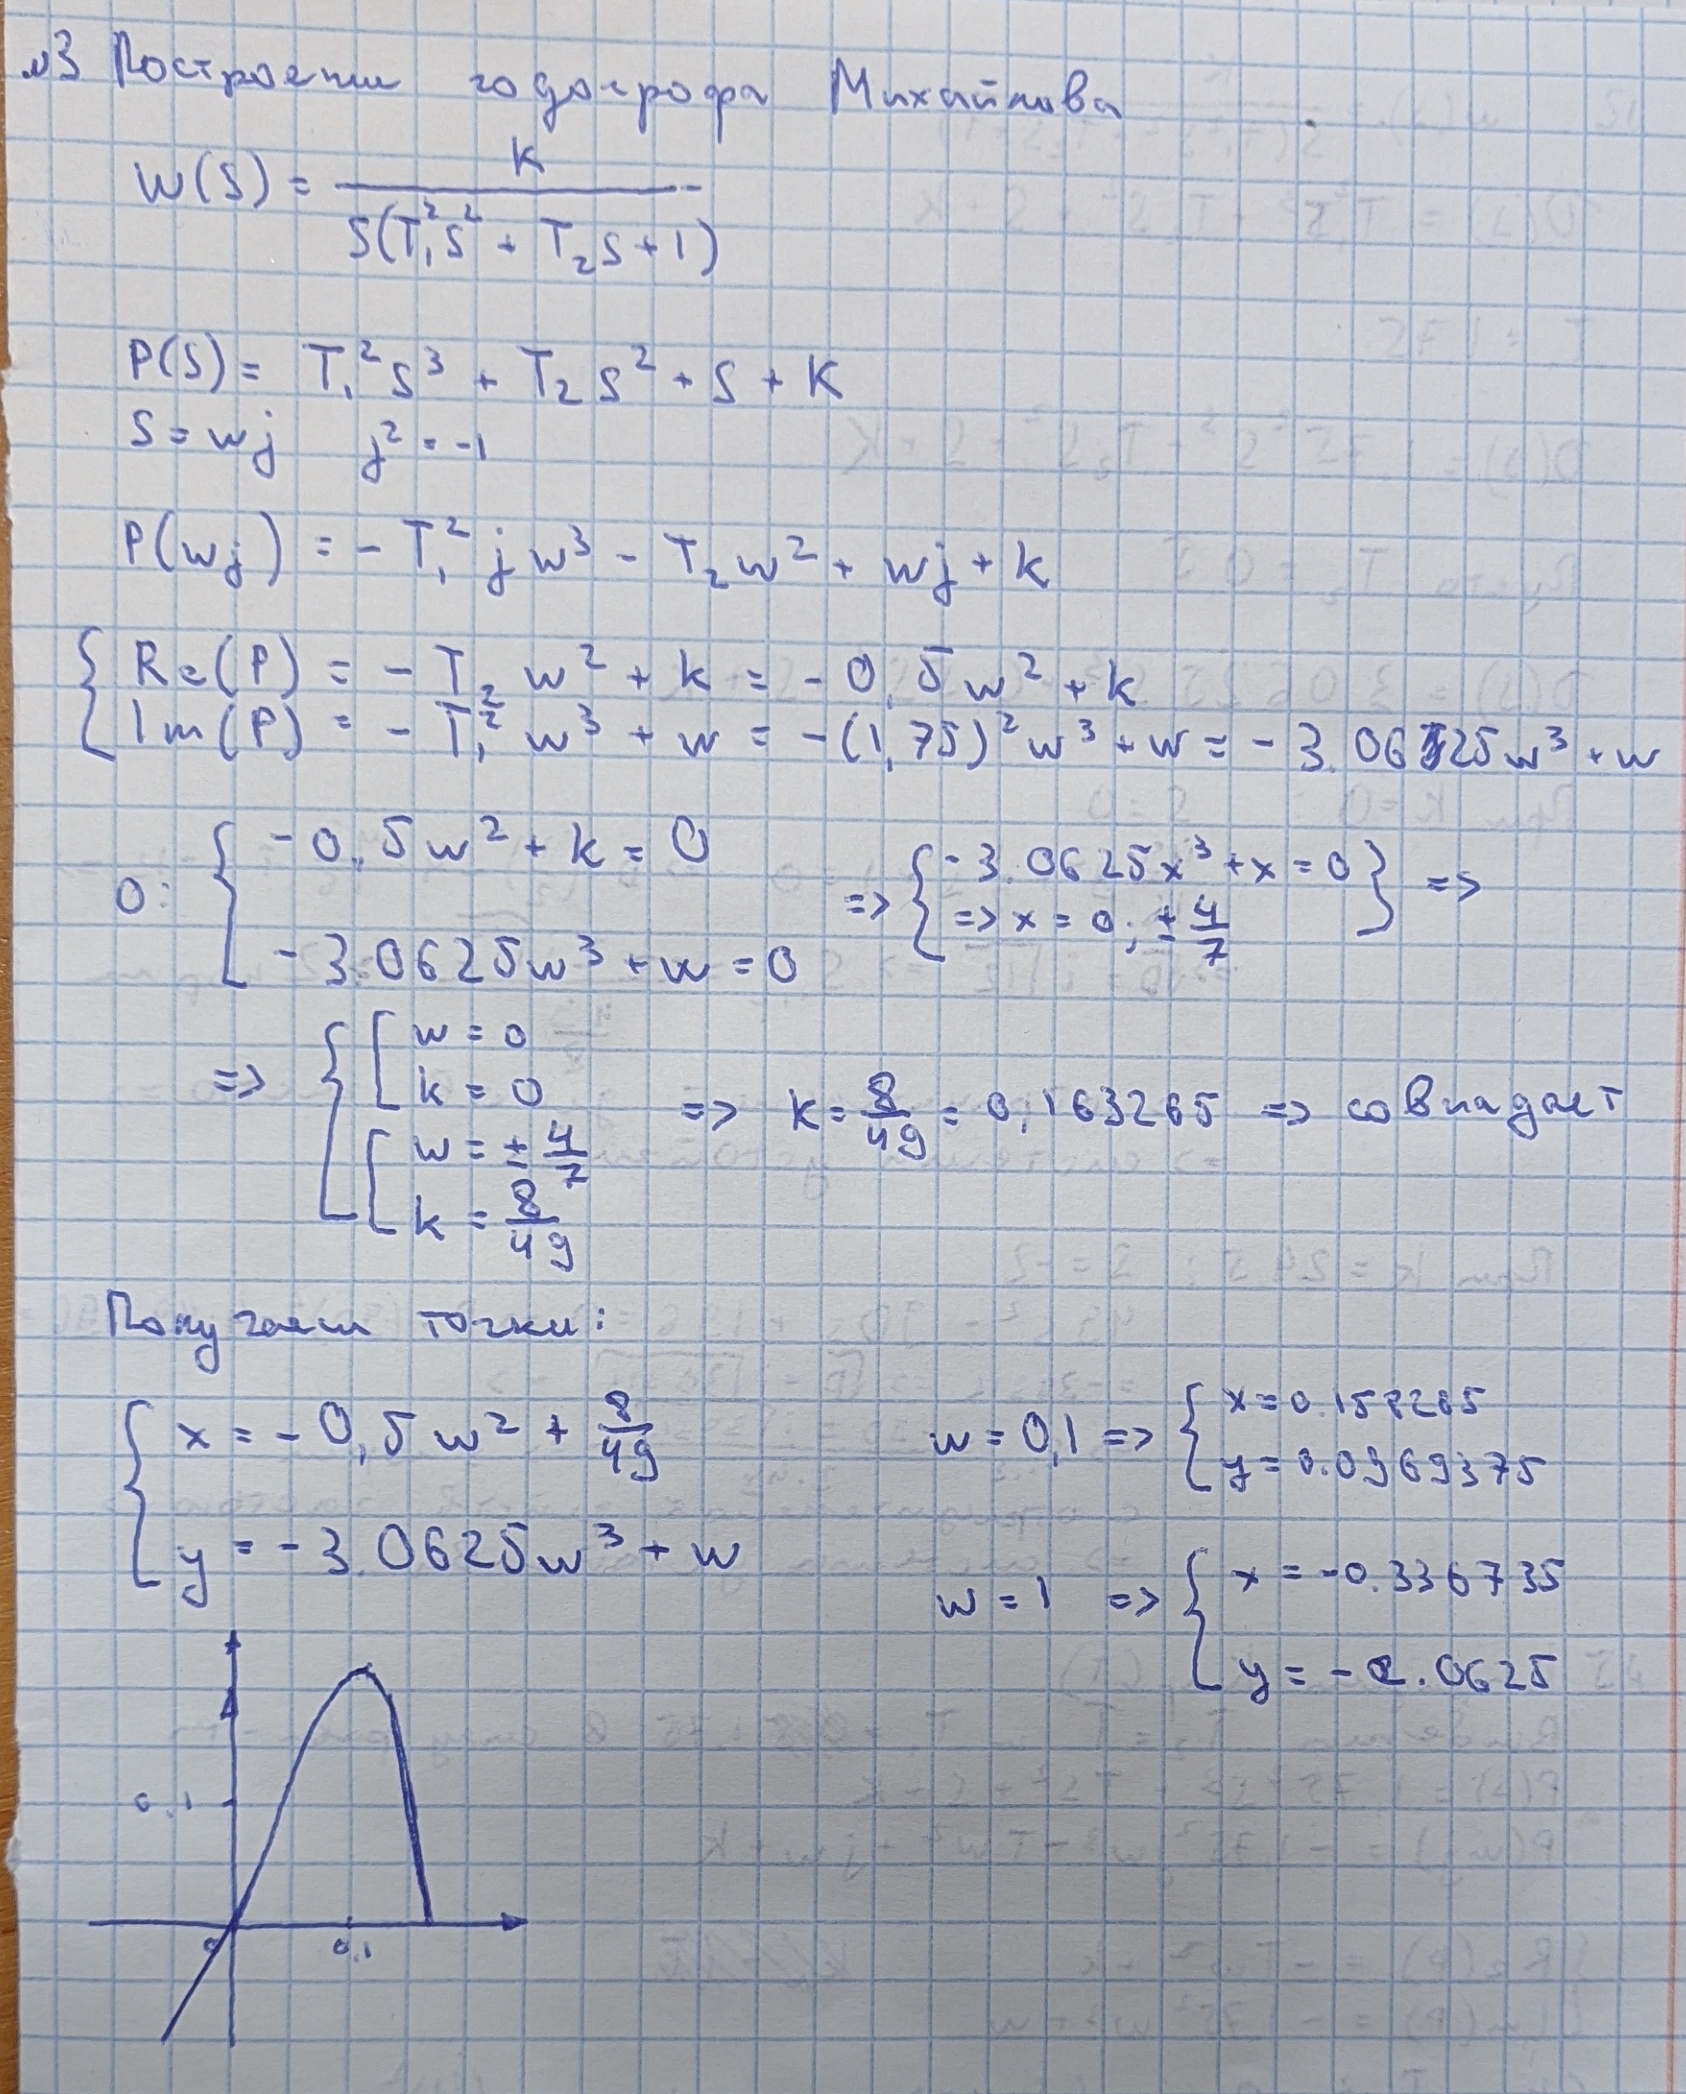 №3 Построение годографа Михайлова
W(S) = K / S(T₁²S² + T₂S + 1)
P(S) = T₁²S³ + T₂S² + S + K
S = wj   j² = -1
P(wj) = - T₁²jw³ - T₂w² + wj + k
Re(P) = - T₂w² + k = - 0,5w² + k
Im(P) = - T₁²w³ + w = -(1,75)²w³ + w = - 3.0625w³ + w
0: { -0,5w² + k = 0
-3.0625w³ + w = 0
=> { -3.0625x³ + x = 0
=> x = 0; ± 4/7 } =>
=> { [ w = 0
k = 0
[ w = ± 4/7
k = 8/49
=> k = 8/49 = 0,163265 => совпадает
Получаем точки:
{ x = - 0,5w² + 8/49
y = - 3.0625w³ + w
w = 0,1 => { x = 0.158265
y = 0.0969375
w = 1 => { x = -0.336735
y = -2.0625
0.1
0
0,1